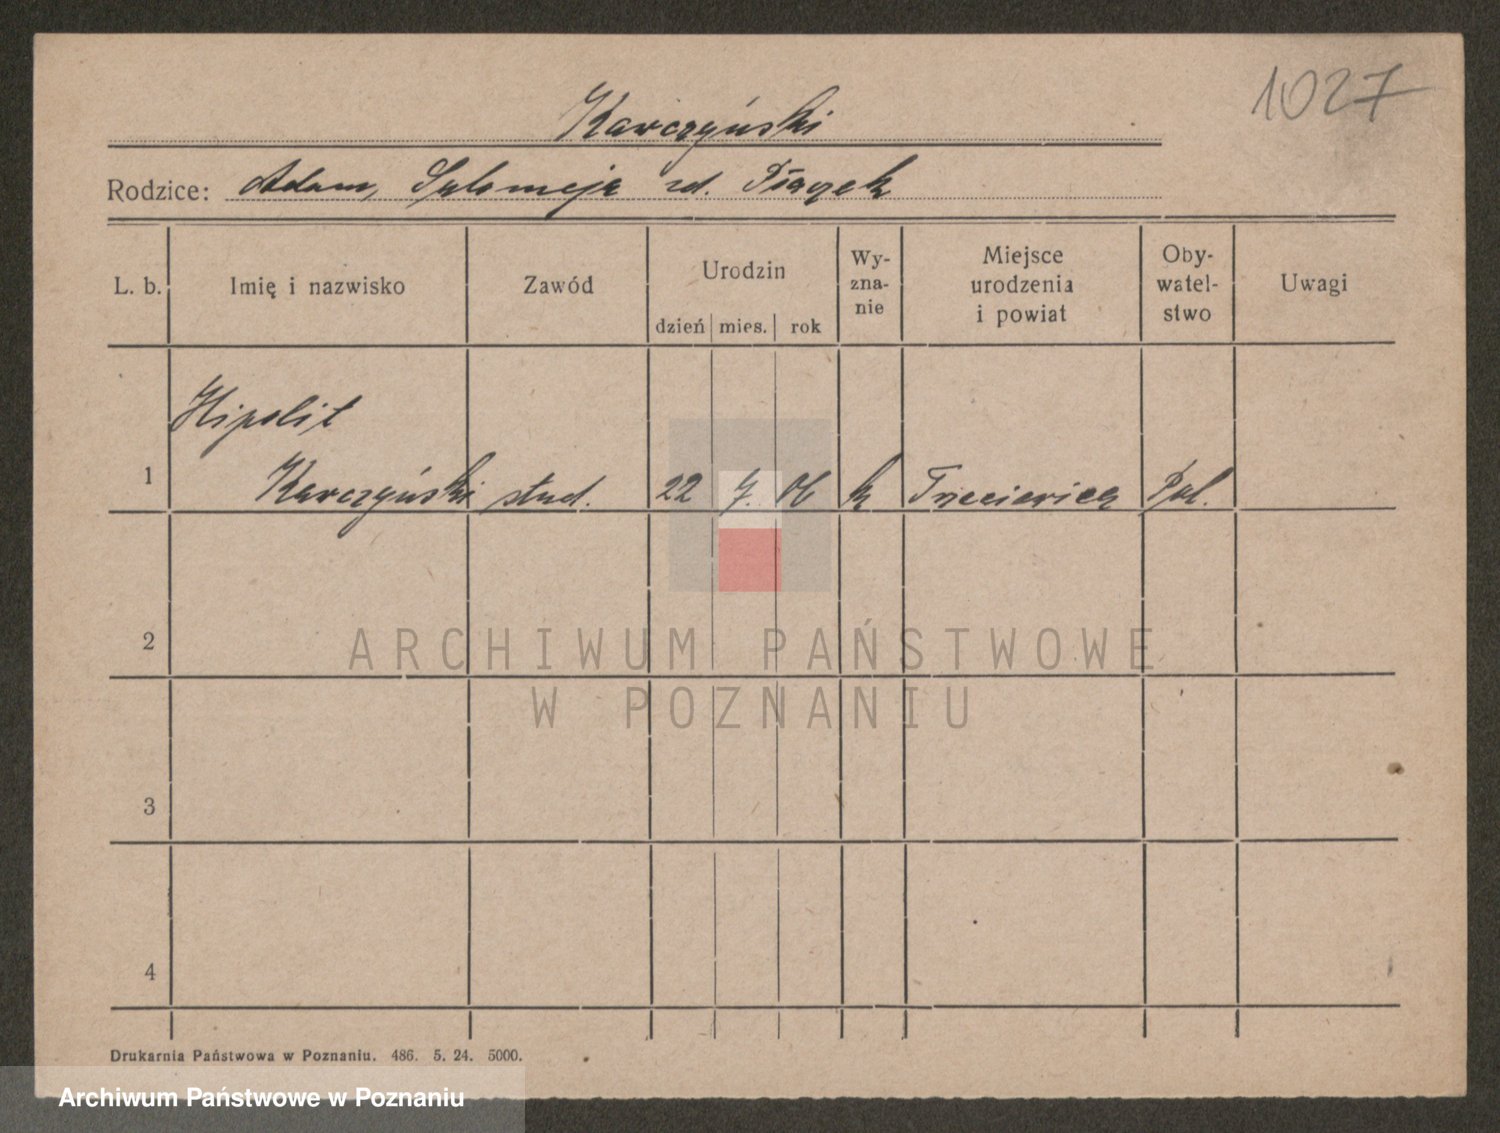 1027
Karczyński
Rodzice: Adam, Salomeja zd. Ptaszek
L. b. Imię i nazwisko Zawód Urodzin dzień mies. rok Wy-zna-nie Miejsce urodzenia i powiat Oby-watel-stwo Uwagi
Hipolit
1 Karczyński stud. 22 7. 06 k Pol.
2
ARCHIWUM PAŃSTWOWE
W POZNANIU
3
4
Drukarnia Państwowa w Poznaniu. 486. 5. 24. 5000.
Archiwum Państwowe w Poznaniu